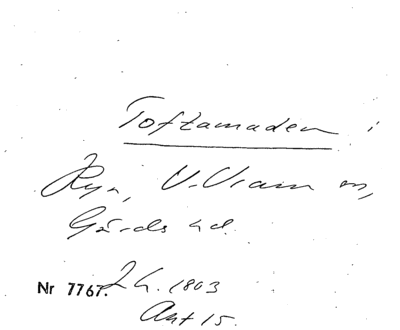 Toftamaden i
V. Vram sn,
Gärds hd.
Nr 7767. 1803
Akt 15.